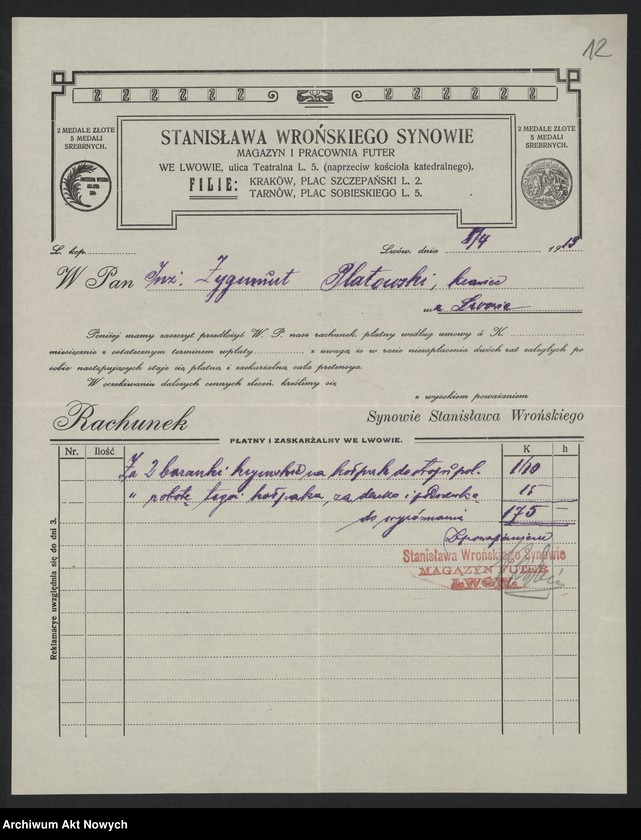 12
2 MEDALE ZŁOTE
5 MEDALI
SREBRNYCH.
STANISŁAWA WROŃSKIEGO SYNOWIE
MAGAZYN I PRACOWNIA FUTER
WE LWOWIE, ulica Teatralna L. 5. (naprzeciw kościoła katedralnego).
FILIE: KRAKÓW, PLAC SZCZEPAŃSKI L. 2.
TARNÓW, PLAC SOBIESKIEGO L. 5.
2 MEDALE ZŁOTE
5 MEDALI
SREBRNYCH.
L. kop.
Lwów, dnia 8/4 1913
W Pan Inż. Zygmunt Platowski,
we Lwowie
Poniżej mamy zaszczyt przedłożyć W. P. nasz rachunek, płatny według umowy á K.
miesięcznie z ostatecznym terminem wpłaty z uwagą że w razie niezapłacenia dwóch rat zaległych po
sobie następujących staje się płatną i zaskarżalną cała pretensya.
W oczekiwaniu dalszych cennych zleceń, kreślimy się
z wysokiem poważaniem
Rachunek
Synowie Stanisława Wrońskiego
PŁATNY I ZASKARŻALNY WE LWOWIE.
Nr. Ilość K h
Za 2 baranki krymskie na kołpak do stroju pol.
" robotę tegoż kołpaka, za denko i podszewkę 15
do wyrównania 175
Z poważaniem
Stanisława Wrońskiego Synowie
MAGAZYN FUTER
LWÓW.
Reklamacye uwzględnia się do dni 3.
Archiwum Akt Nowych